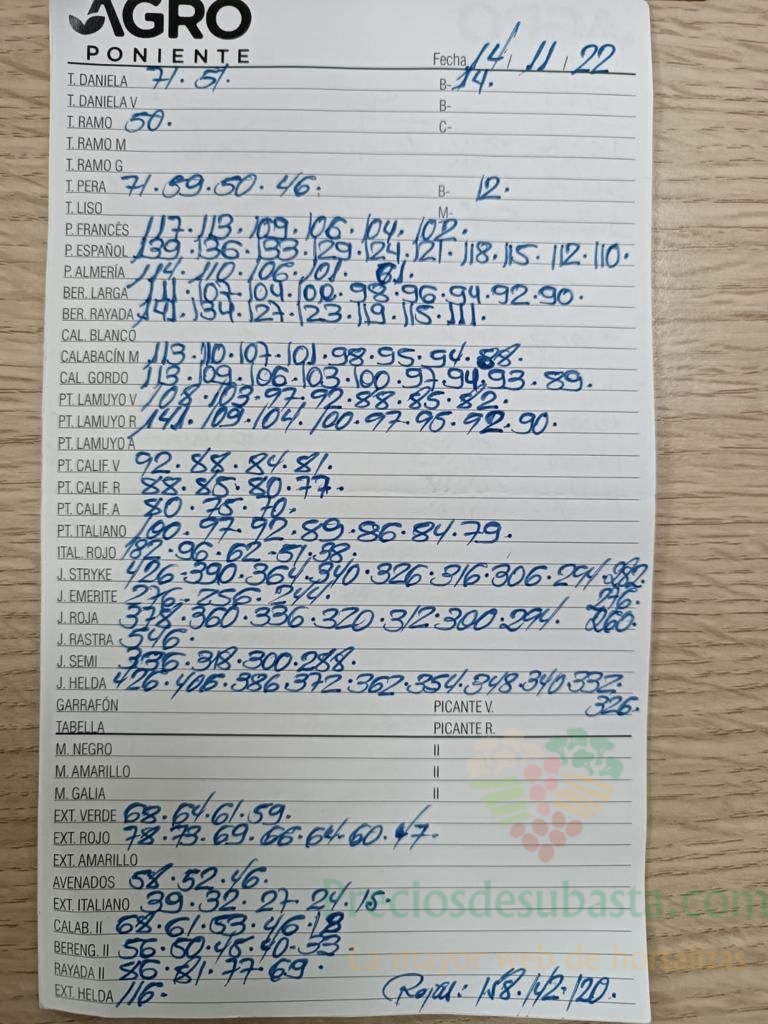 AGRO
PONIENTE
Fecha 14 / 11 / 22
T. DANIELA 71. 51. B- 14.
T. DANIELA V B-
T. RAMO 50. C-
T. RAMO M
T. RAMO G
T. PERA 71. 59. 50. 46. B- 12.
T. LISO M-
P. FRANCÉS 117. 113. 109. 106. 104. 102.
P. ESPAÑOL 139. 136. 133. 129. 124. 121. 118. 115. 112. 110.
P. ALMERÍA 114. 110. 106. 101. 61.
BER. LARGA 111. 107. 104. 100. 98. 96. 94. 92. 90.
BER. RAYADA 141. 134. 127. 123. 119. 115. 111.
CAL. BLANCO
CALABACÍN M 113. 110. 107. 101. 98. 95. 94. 88.
CAL. GORDO 113. 109. 106. 103. 100. 97. 94. 93. 89.
PT. LAMUYO V 108. 103. 97. 92. 88. 85. 82.
PT. LAMUYO R 141. 109. 104. 100. 97. 95. 92. 90.
PT. LAMUYO A
PT. CALIF. V 92. 88. 84. 81.
PT. CALIF. R 88. 85. 80. 77.
PT. CALIF. A 80. 75. 70.
PT. ITALIANO 100. 97. 92. 89. 86. 84. 79.
ITAL. ROJO 182. 96. 62. 51. 38.
J. STRYKE 426. 390. 364. 340. 326. 316. 306. 294. 282.
J. EMERITE 276. 256. 244. 276.
J. ROJA 378. 360. 336. 320. 312. 300. 294. 260.
J. RASTRA 546.
J. SEMI 336. 318. 300. 288.
J. HELDA 426. 406. 386. 372. 362. 354. 348. 340. 332.
GARRAFÓN PICANTE V. 326.
TABELLA PICANTE R.
M. NEGRO II
M. AMARILLO II
M. GALIA II
EXT. VERDE 68. 64. 61. 59.
EXT. ROJO 78. 73. 69. 66. 64. 60. 47.
EXT. AMARILLO
AVENADOS 58. 52. 46.
EXT. ITALIANO 39. 32. 27. 24. 15.
Preciosdesubasta.com
CALAB. II 68. 61. 53. 46. 18
BERENG. II 56. 50. 45. 40. 33.
La mayor web de hortalizas
RAYADA II 86. 81. 77. 69.
EXT. HELDA 116. Rojal: 158. 142. 120.